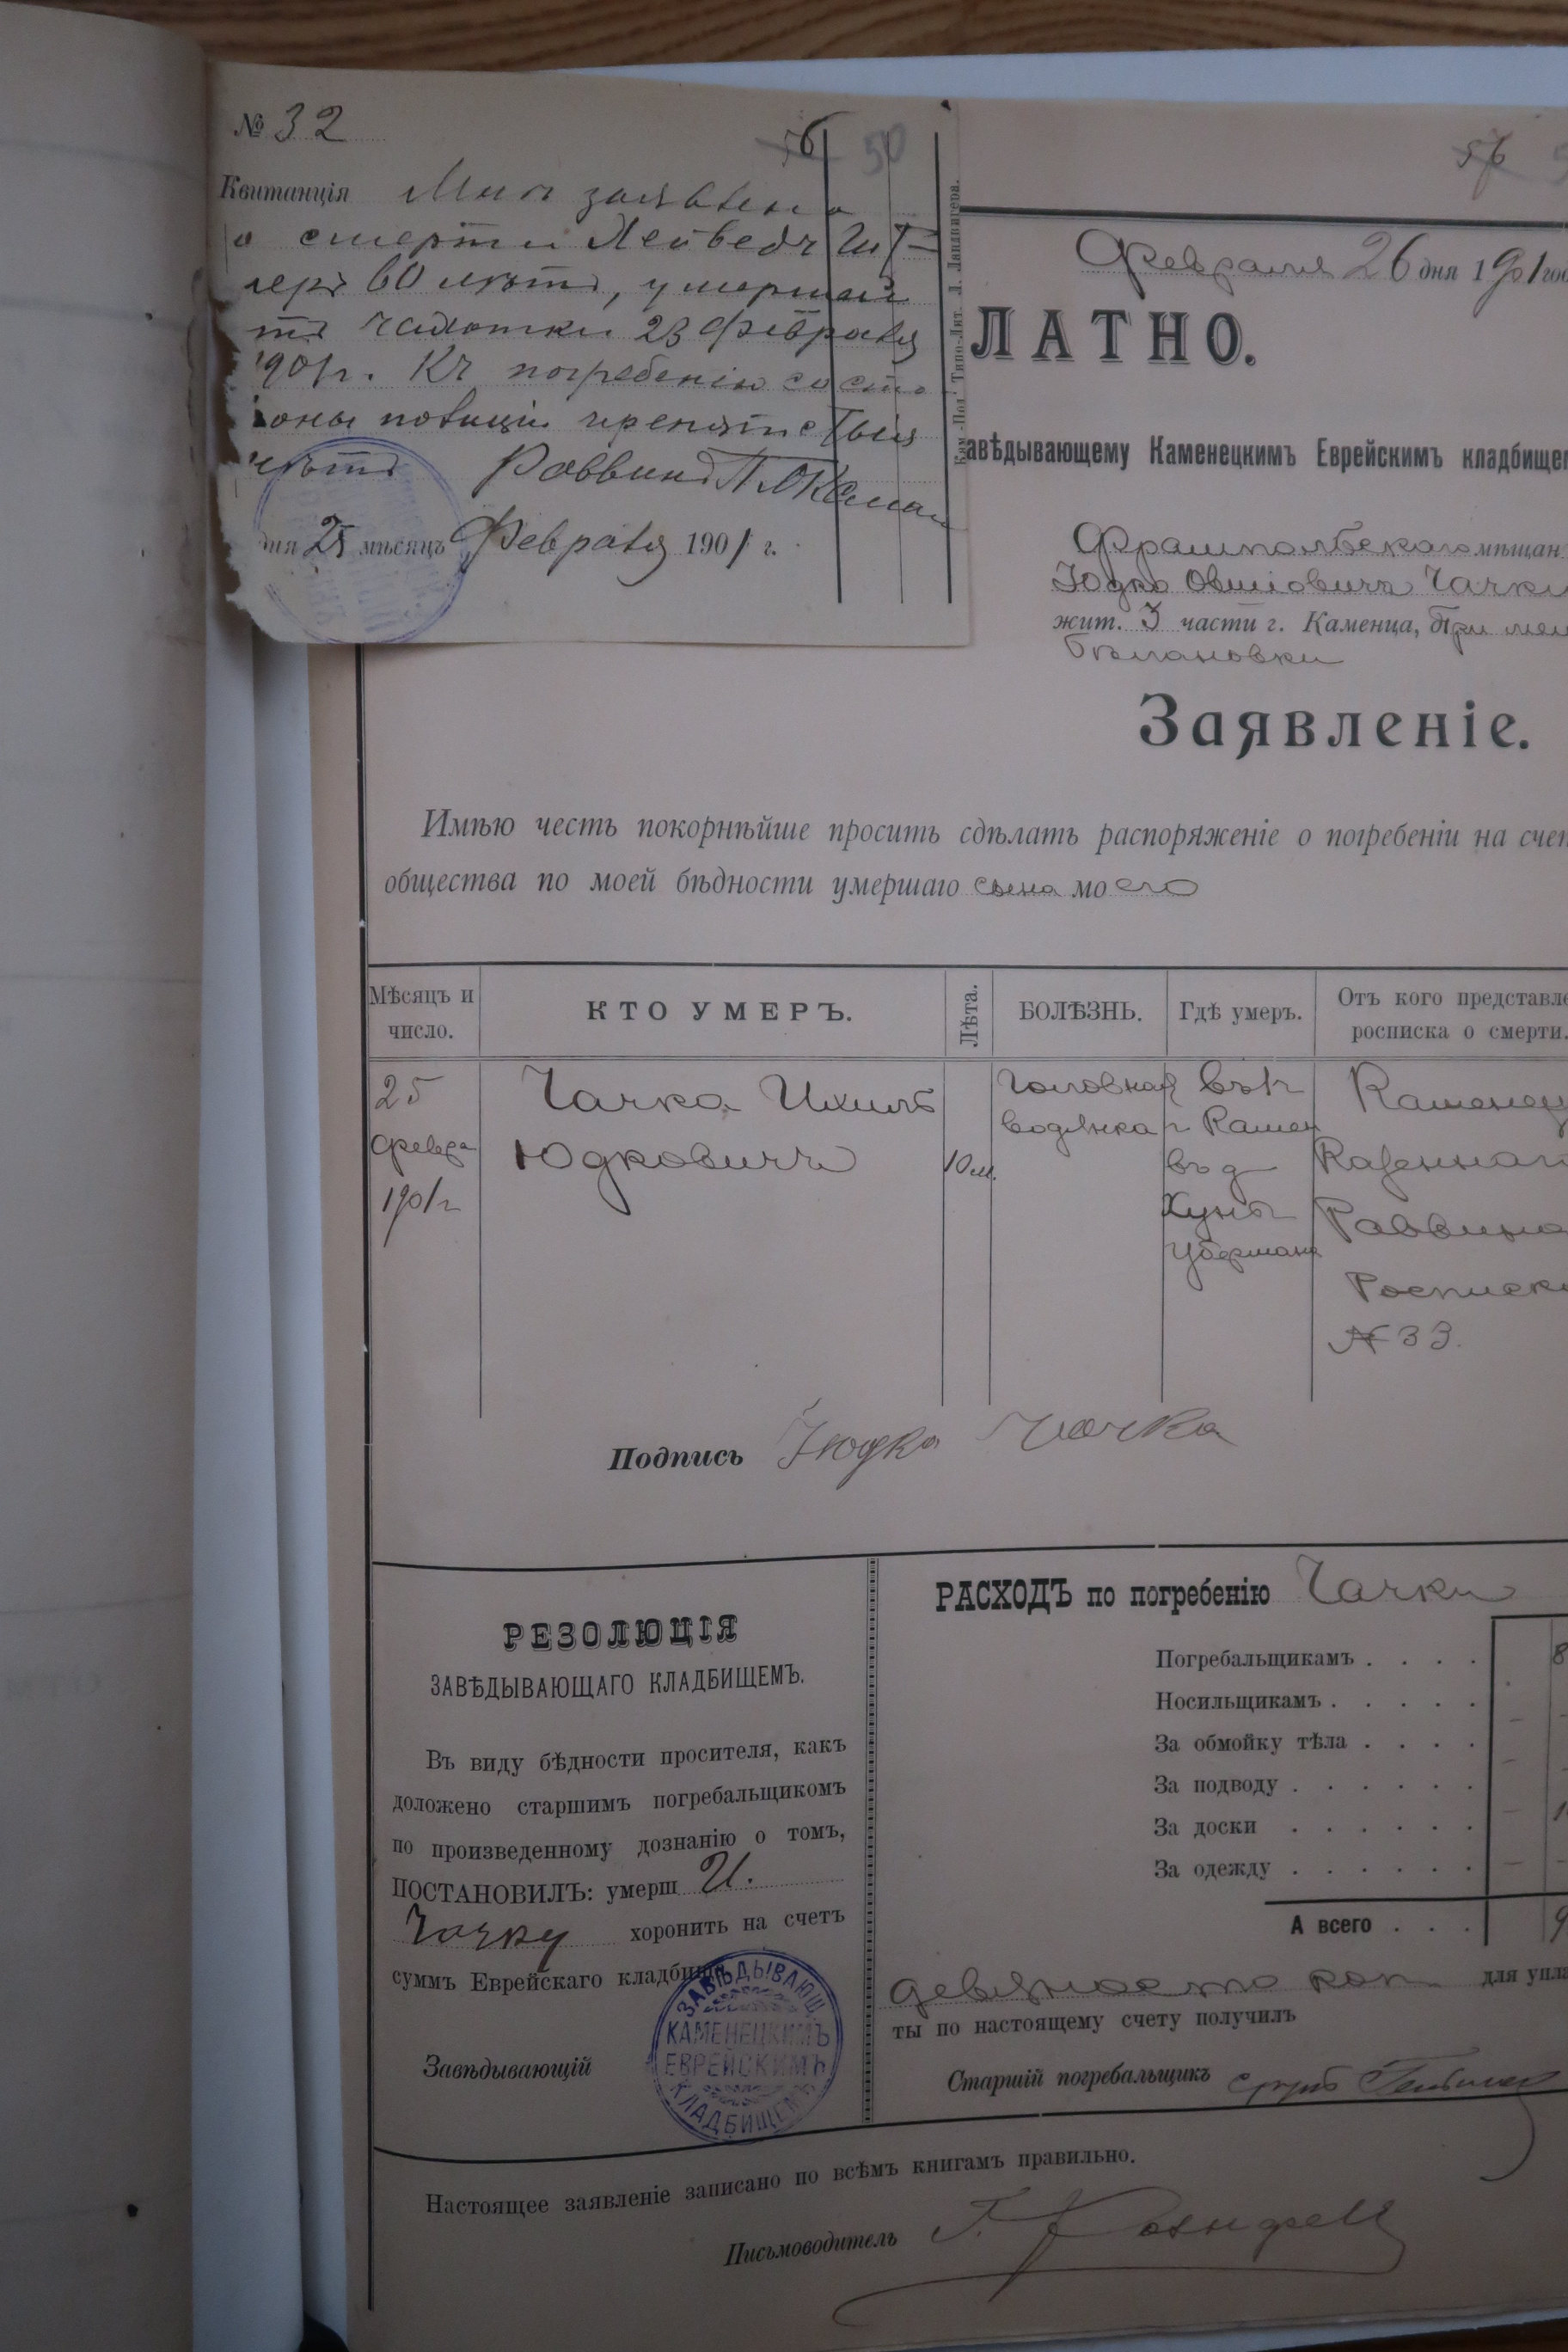 № 32
56 50
Квитанція Мнѣ заявлено
о смерти Лейведъ
леръ 60 лѣтъ, умершей
тъ чахотки 23 Февраля
1901 г. Къ погребенію со сто
оны полиціи препятствія
нѣтъ Раввинъ
дня 25 мѣсяцъ Февраля 1901 г.
Кам.-Под. Типо-Лит. Л. Ландвигера.
56 5
Февраля 26 дня 1901 год
ЛАТНО.
авѣдывающему Каменецкимъ Еврейскимъ кладбищем
Фрампольскаго мѣщан
Юдко Овшіовичъ Чачки
жит. 3 части г. Каменца, при
Заявленіе.
Имѣю честь покорнѣйше просить сдѣлать распоряженіе о погребеніи на счет
общества по моей бѣдности умершаго сына моего
Мѣсяцъ и число.
КТО УМЕРЪ.
Лѣта.
БОЛѢЗНЬ.
Гдѣ умеръ.
Отъ кого представле
росписка о смерти.
25
Февра
1901 г
Чачка Ихиль
Юдковичъ
10 м.
Головная
водянка
г Камен
въ д
Хуны
Убермана
Каменец
Казеннаго
Раввина
Росписки
№ 33.
Подпись Июдка Чачка
РЕЗОЛЮЦІЯ
ЗАВѢДЫВАЮЩАГО КЛАДБИЩЕМЪ.
Въ виду бѣдности просителя, какъ
доложено старшимъ погребальщикомъ
по произведенному дознанію о томъ,
ПОСТАНОВИЛЪ: умерш И.
Чачку хоронить на счетъ
суммъ Еврейскаго кладбища
Завѣдывающій
ЗАВѢДЫВАЮЩ.
КАМЕНЕЦКИМЪ
ЕВРЕЙСКИМЪ
КЛАДБИЩЕМЪ
РАСХОДЪ по погребенію Чачки
Погребальщикамъ . . . . 8
Носильщикамъ . . . . . –
За обмойку тѣла . . . . –
За подводу . . . . . . –
За доски . . . . . . – 1
За одежду . . . . . . – –
А всего . . . 9
девяносто коп для упла
ты по настоящему счету получилъ
Старшій погребальщикъ
Настоящее заявленіе записано по всѣмъ книгамъ правильно.
Письмоводитель